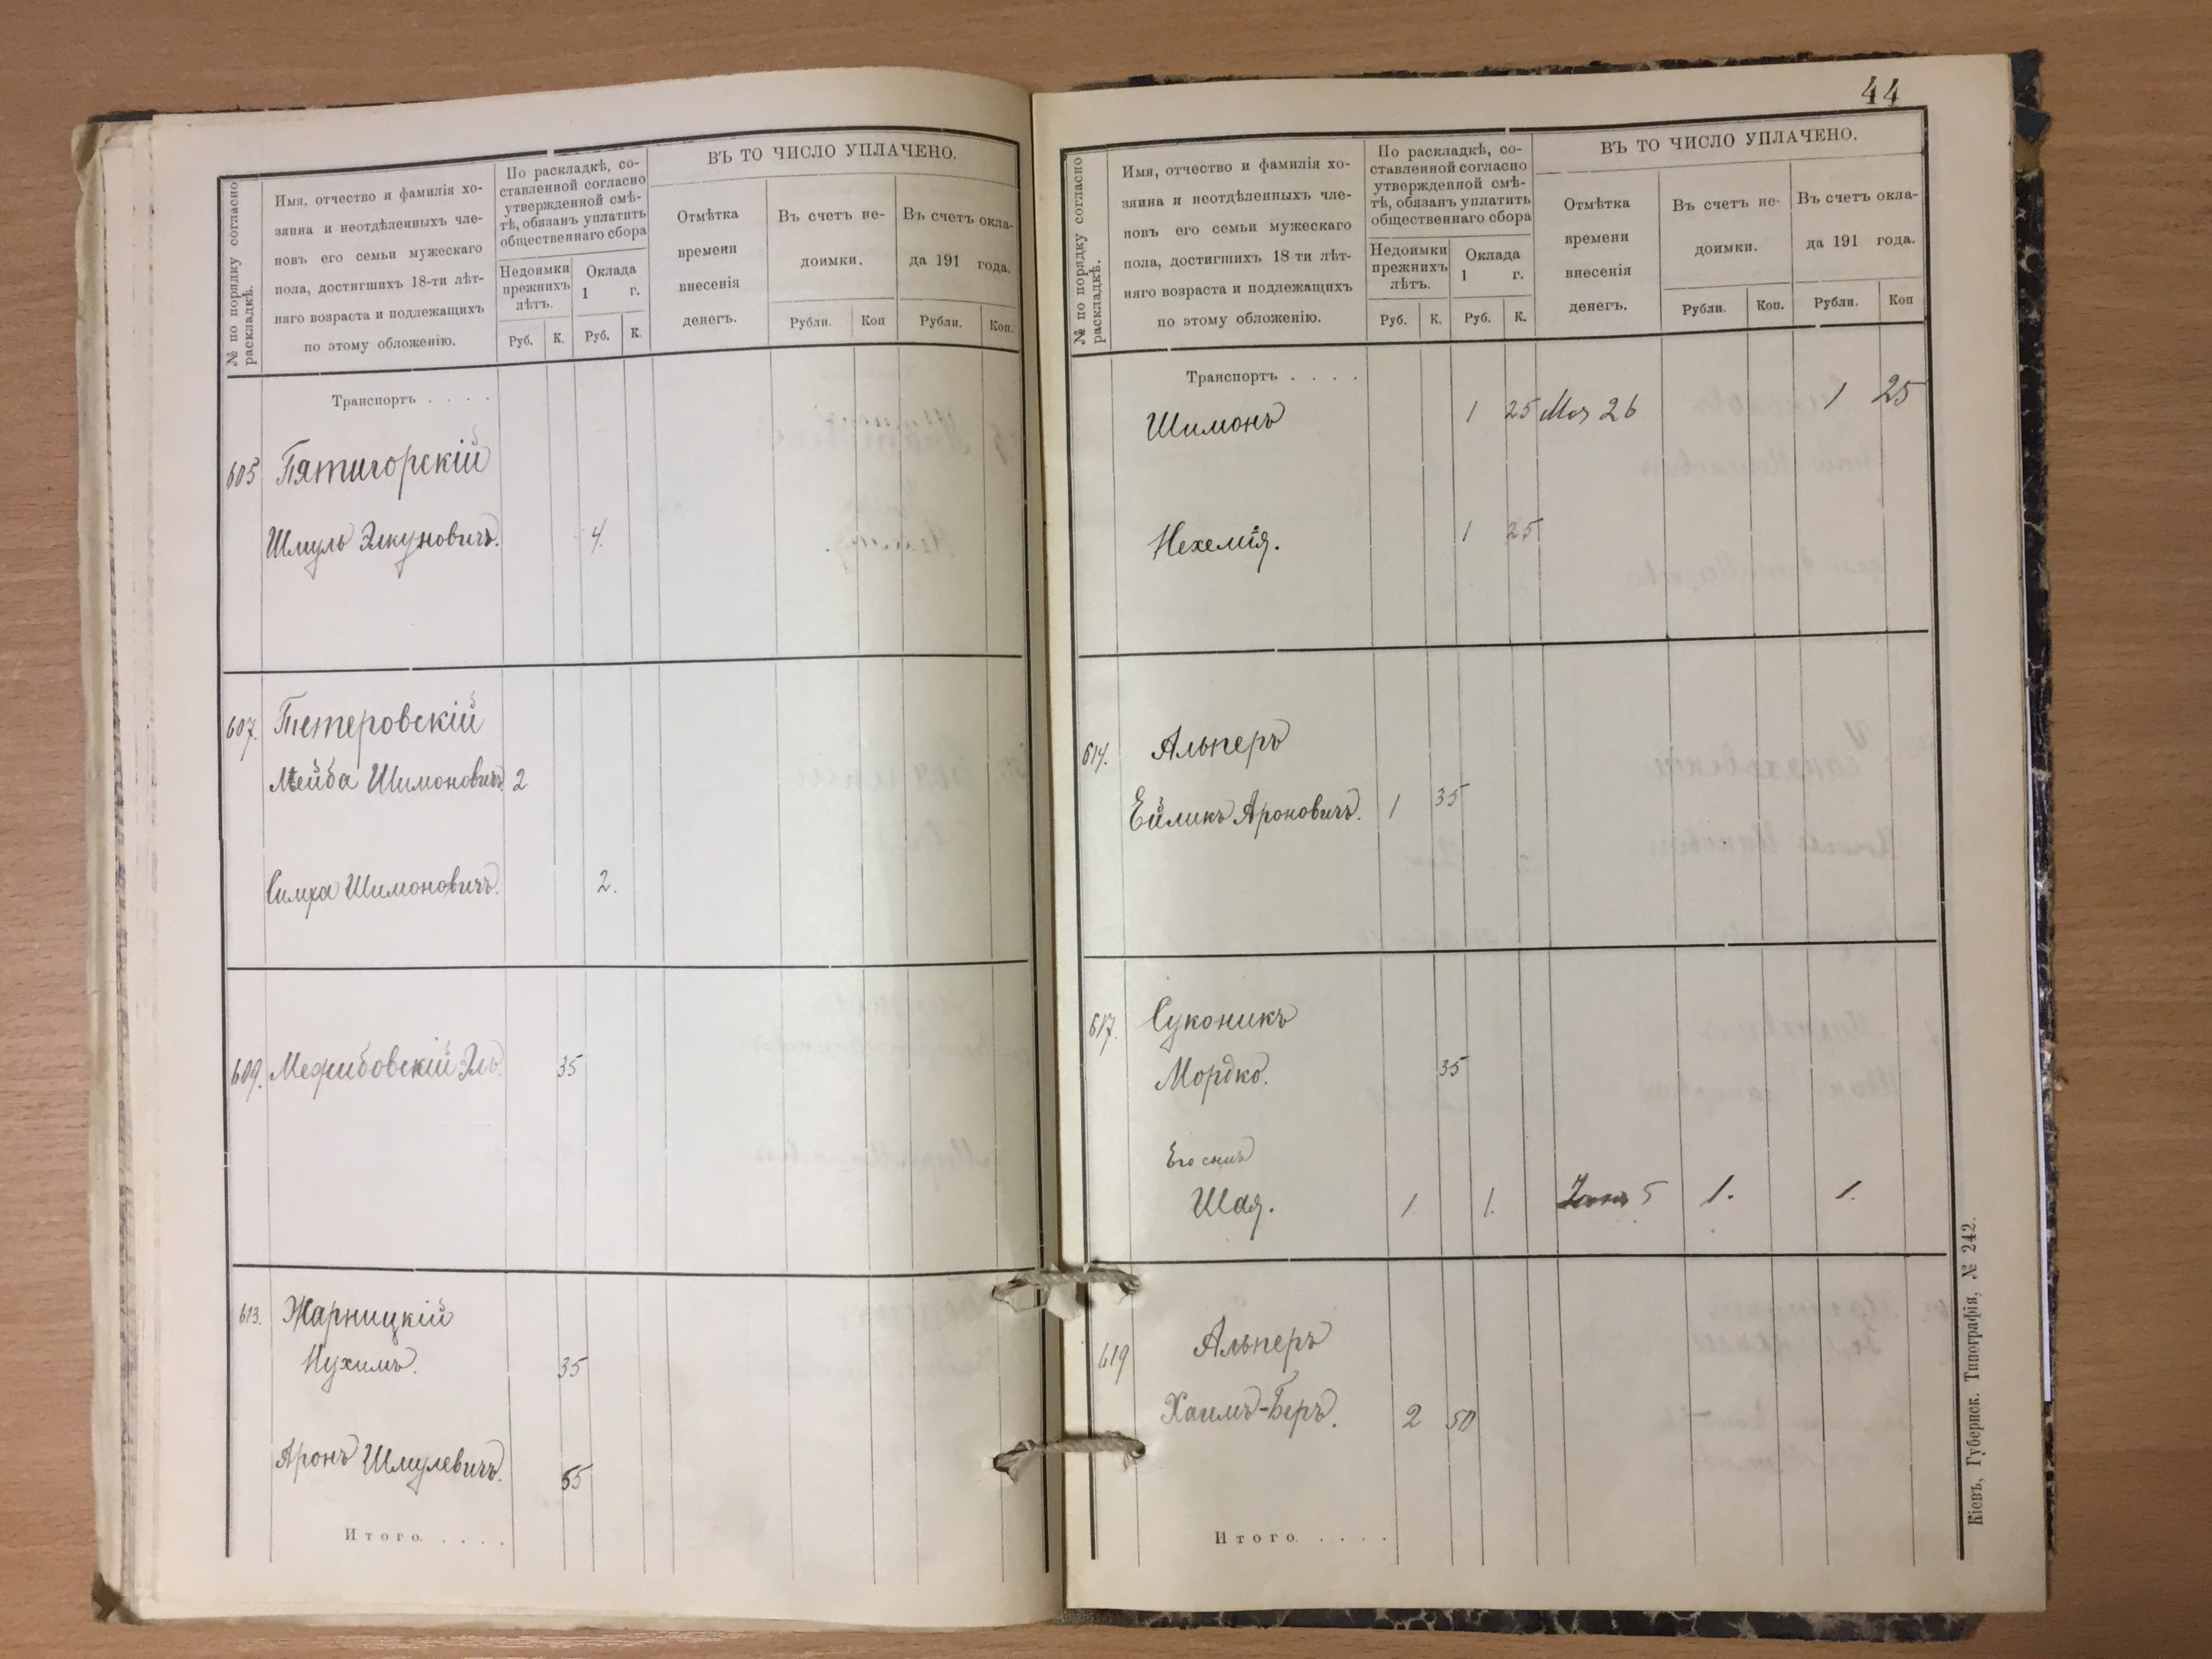 № по порядку согласно
раскладкѣ.
Имя, отчество и фамилія хо-
зяина и неотдѣленныхъ чле-
новъ его семьи мужескаго
пола, достигшихъ 18-ти лѣт-
няго возраста и подлежащихъ
по этому обложенію.
По раскладкѣ, со-
ставленной согласно
утвержденной смѣ-
тѣ, обязанъ уплатить
общественнаго сбора
Недоимки
прежнихъ
лѣтъ.
Оклада
1 г.
Руб. К. Руб. К.
ВЪ ТО ЧИСЛО УПЛАЧЕНО.
Отмѣтка
времени
внесенія
денегъ.
Въ счетъ не-
доимки.
Въ счетъ окла-
да 191 года.
Рубли. Коп Рубли. Коп.
Транспортъ . . . .
605 Пятигорскій
Шмуль Элкуновичъ. 4.
607. Тетеровскій
Мейба Шимоновичъ 2
Симха Шимоновичъ. 2.
609. Межибовскій Эль 35
613. Жарницкій
Нухимъ. 35
Аронъ Шмулевичъ. 55
Итого. . . . .
44
№ по порядку согласно
раскладкѣ.
Имя, отчество и фамилія хо-
зяина и неотдѣленныхъ чле-
новъ его семьи мужескаго
пола, достигшихъ 18-ти лѣт-
няго возраста и подлежащихъ
по этому обложенію.
По раскладкѣ, со-
ставленной согласно
утвержденной смѣ-
тѣ, обязанъ уплатить
общественнаго сбора
Недоимки
прежнихъ
лѣтъ.
Оклада
1 г.
Руб. К. Руб. К.
ВЪ ТО ЧИСЛО УПЛАЧЕНО.
Отмѣтка
времени
внесенія
денегъ.
Въ счетъ не-
доимки.
Въ счетъ окла-
да 191 года.
Рубли. Коп. Рубли. Коп
Транспортъ . . . .
Шимонъ 1 25 Мая 26 1 25
Нехемія. 1 25
614. Альперъ
Ейликъ Ароновичъ. 1 35
617. Суконикъ
Мордко. 35
Его сынъ
Шая. 1. 1. 5 1. 1.
619 Альперъ
Хаимъ-Беръ. 2 50
Итого. . . . .
Кіевъ, Губернск. Типографія, № 242.